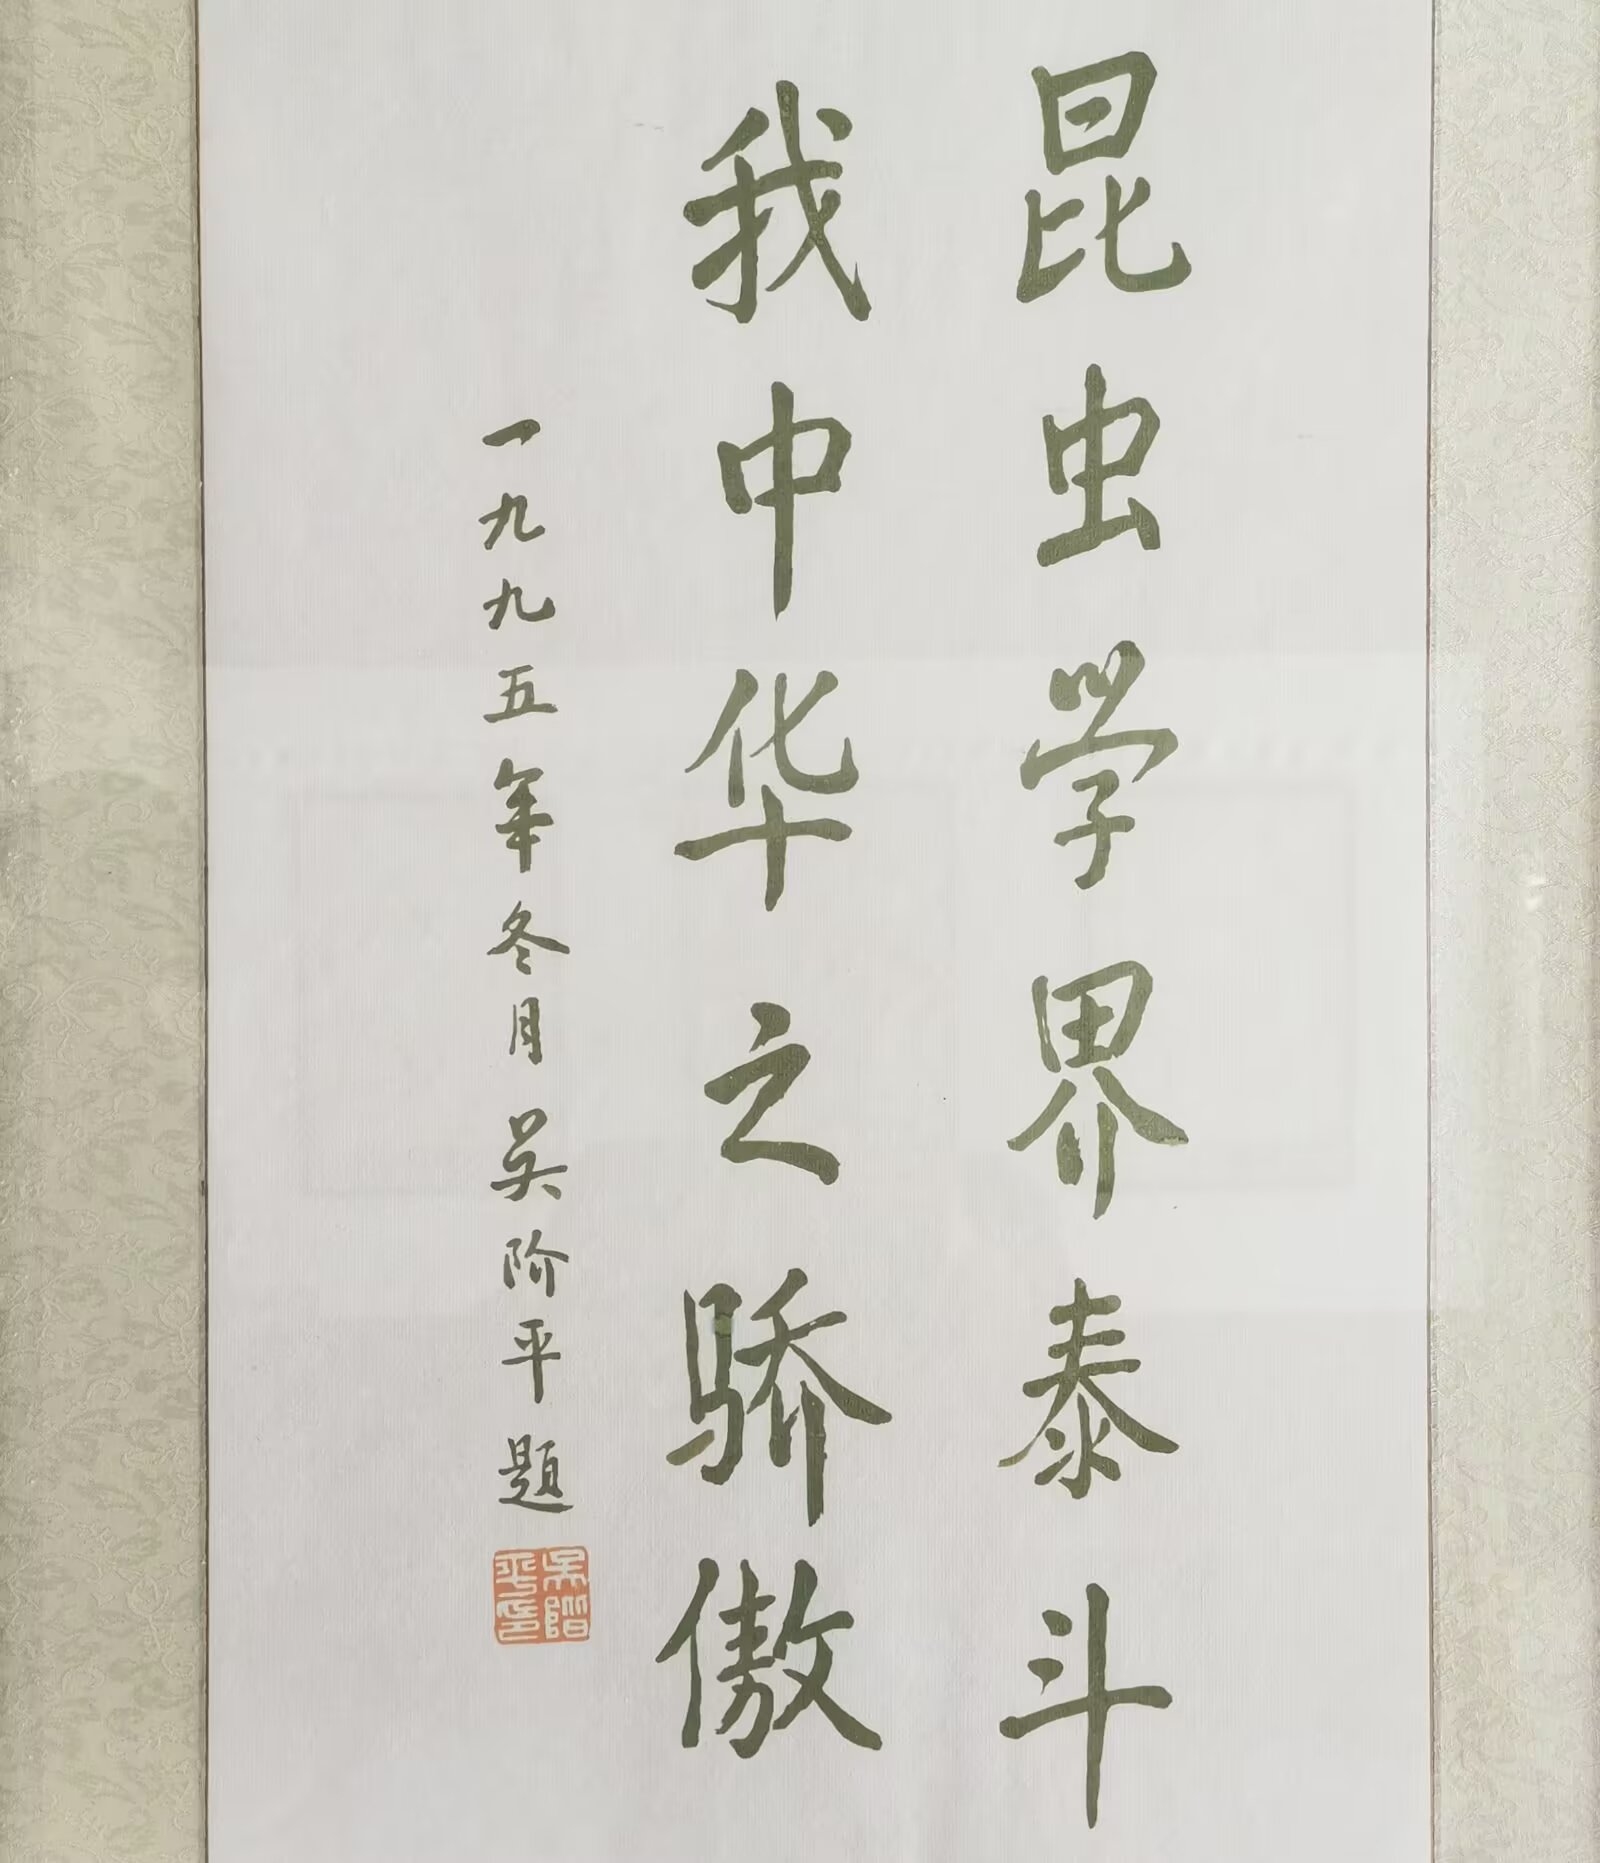 昆虫学界泰斗
我中华之骄傲
一九九五年冬月 吴阶平 题
吴阶平印